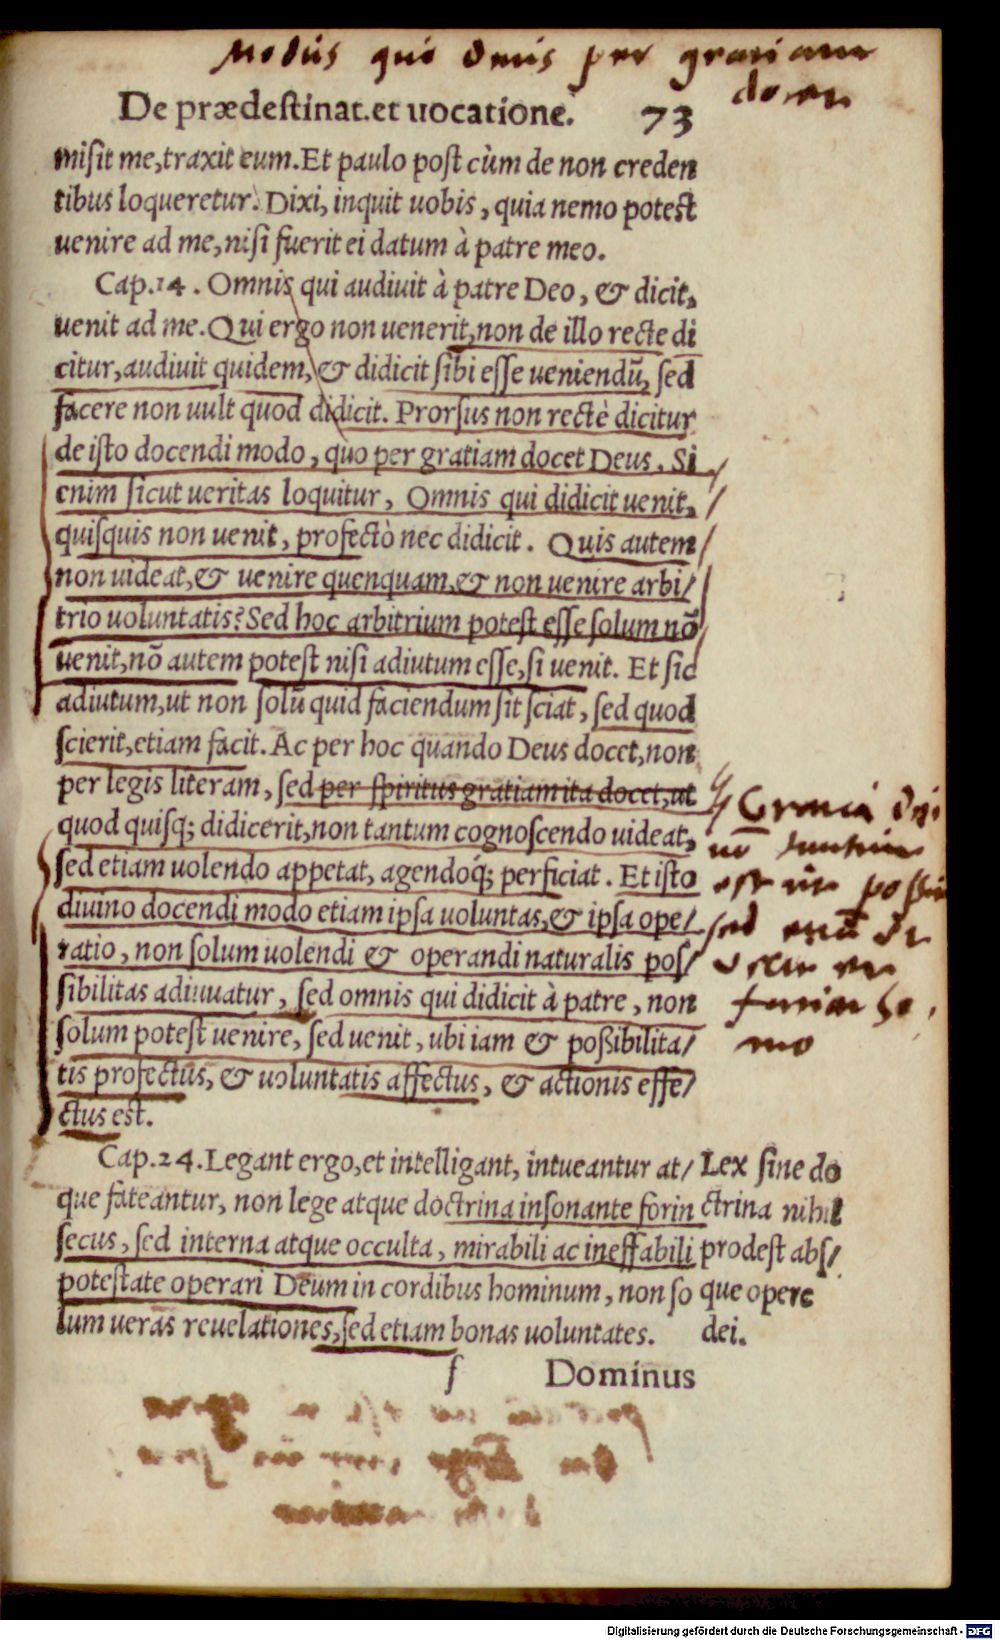 Modus quo Deus per gratiam
docet
De prædestinat.et uocatione. 73
misit me,traxit eum.Et paulo post cùm de non creden
tibus loqueretur. Dixi, inquit uobis, quia nemo potest
uenire ad me, nisi fuerit ei datum à patre meo.
Cap.14. Omnis qui audiuit à patre Deo, & dicit,
uenit ad me. Qui ergo non uenerit, non de illo recte di
citur, audiuit quidem, & didicit sibi esse ueniendũ, sed
facere non uult quod didicit. Prorsus non rectè dicitur
de isto docendi modo, quo per gratiam docet Deus. Si
enim sicut ueritas loquitur, Omnis qui didicit uenit,
quisquis non uenit, profectò nec didicit. Quis autem
non uideat, & uenire quenquam, & non uenire arbi/
trio uoluntatis? Sed hoc arbitrium potest esse solum nõ
uenit, nõ autem potest nisi adiutum esse, si uenit. Et sic
adiutum, ut non solũ quid faciendum sit sciat, sed quod
scierit, etiam facit. Ac per hoc quando Deus docet, non
per legis literam, sed per spiritus gratiam ita docet, ut
quod quisq; didicerit, non tantum cognoscendo uideat,
sed etiam uolendo appetat, agendoq́; perficiat. Et isto
diuino docendi modo etiam ipsa uoluntas, & ipsa ope/
ratio, non solum uolendi & operandi naturalis pos/
sibilitas adiuuatur, sed omnis qui didicit à patre, non
solum potest uenire, sed uenit, ubi iam & poßibilita/
tis profectus, & uoluntatis affectus, & actionis effe/
ctus est.
Gracia
nõ tantum
est ut possim
sed etiã
uelit et
faciat ho
mo
Cap.24. Legant ergo, et intelligant, intueantur at/
que fateantur, non lege atque doctrina insonante forin
secus, sed interna atque occulta, mirabili ac ineffabili
potestate operari Deum in cordibus hominum, non so
lum ueras reuelationes, sed etiam bonas uoluntates.
Lex sine do
ctrina nihil
prodest abs/
que opere
dei.
f Dominus
Digitalisierung gefördert durch die Deutsche Forschungsgemeinschaft - DFG